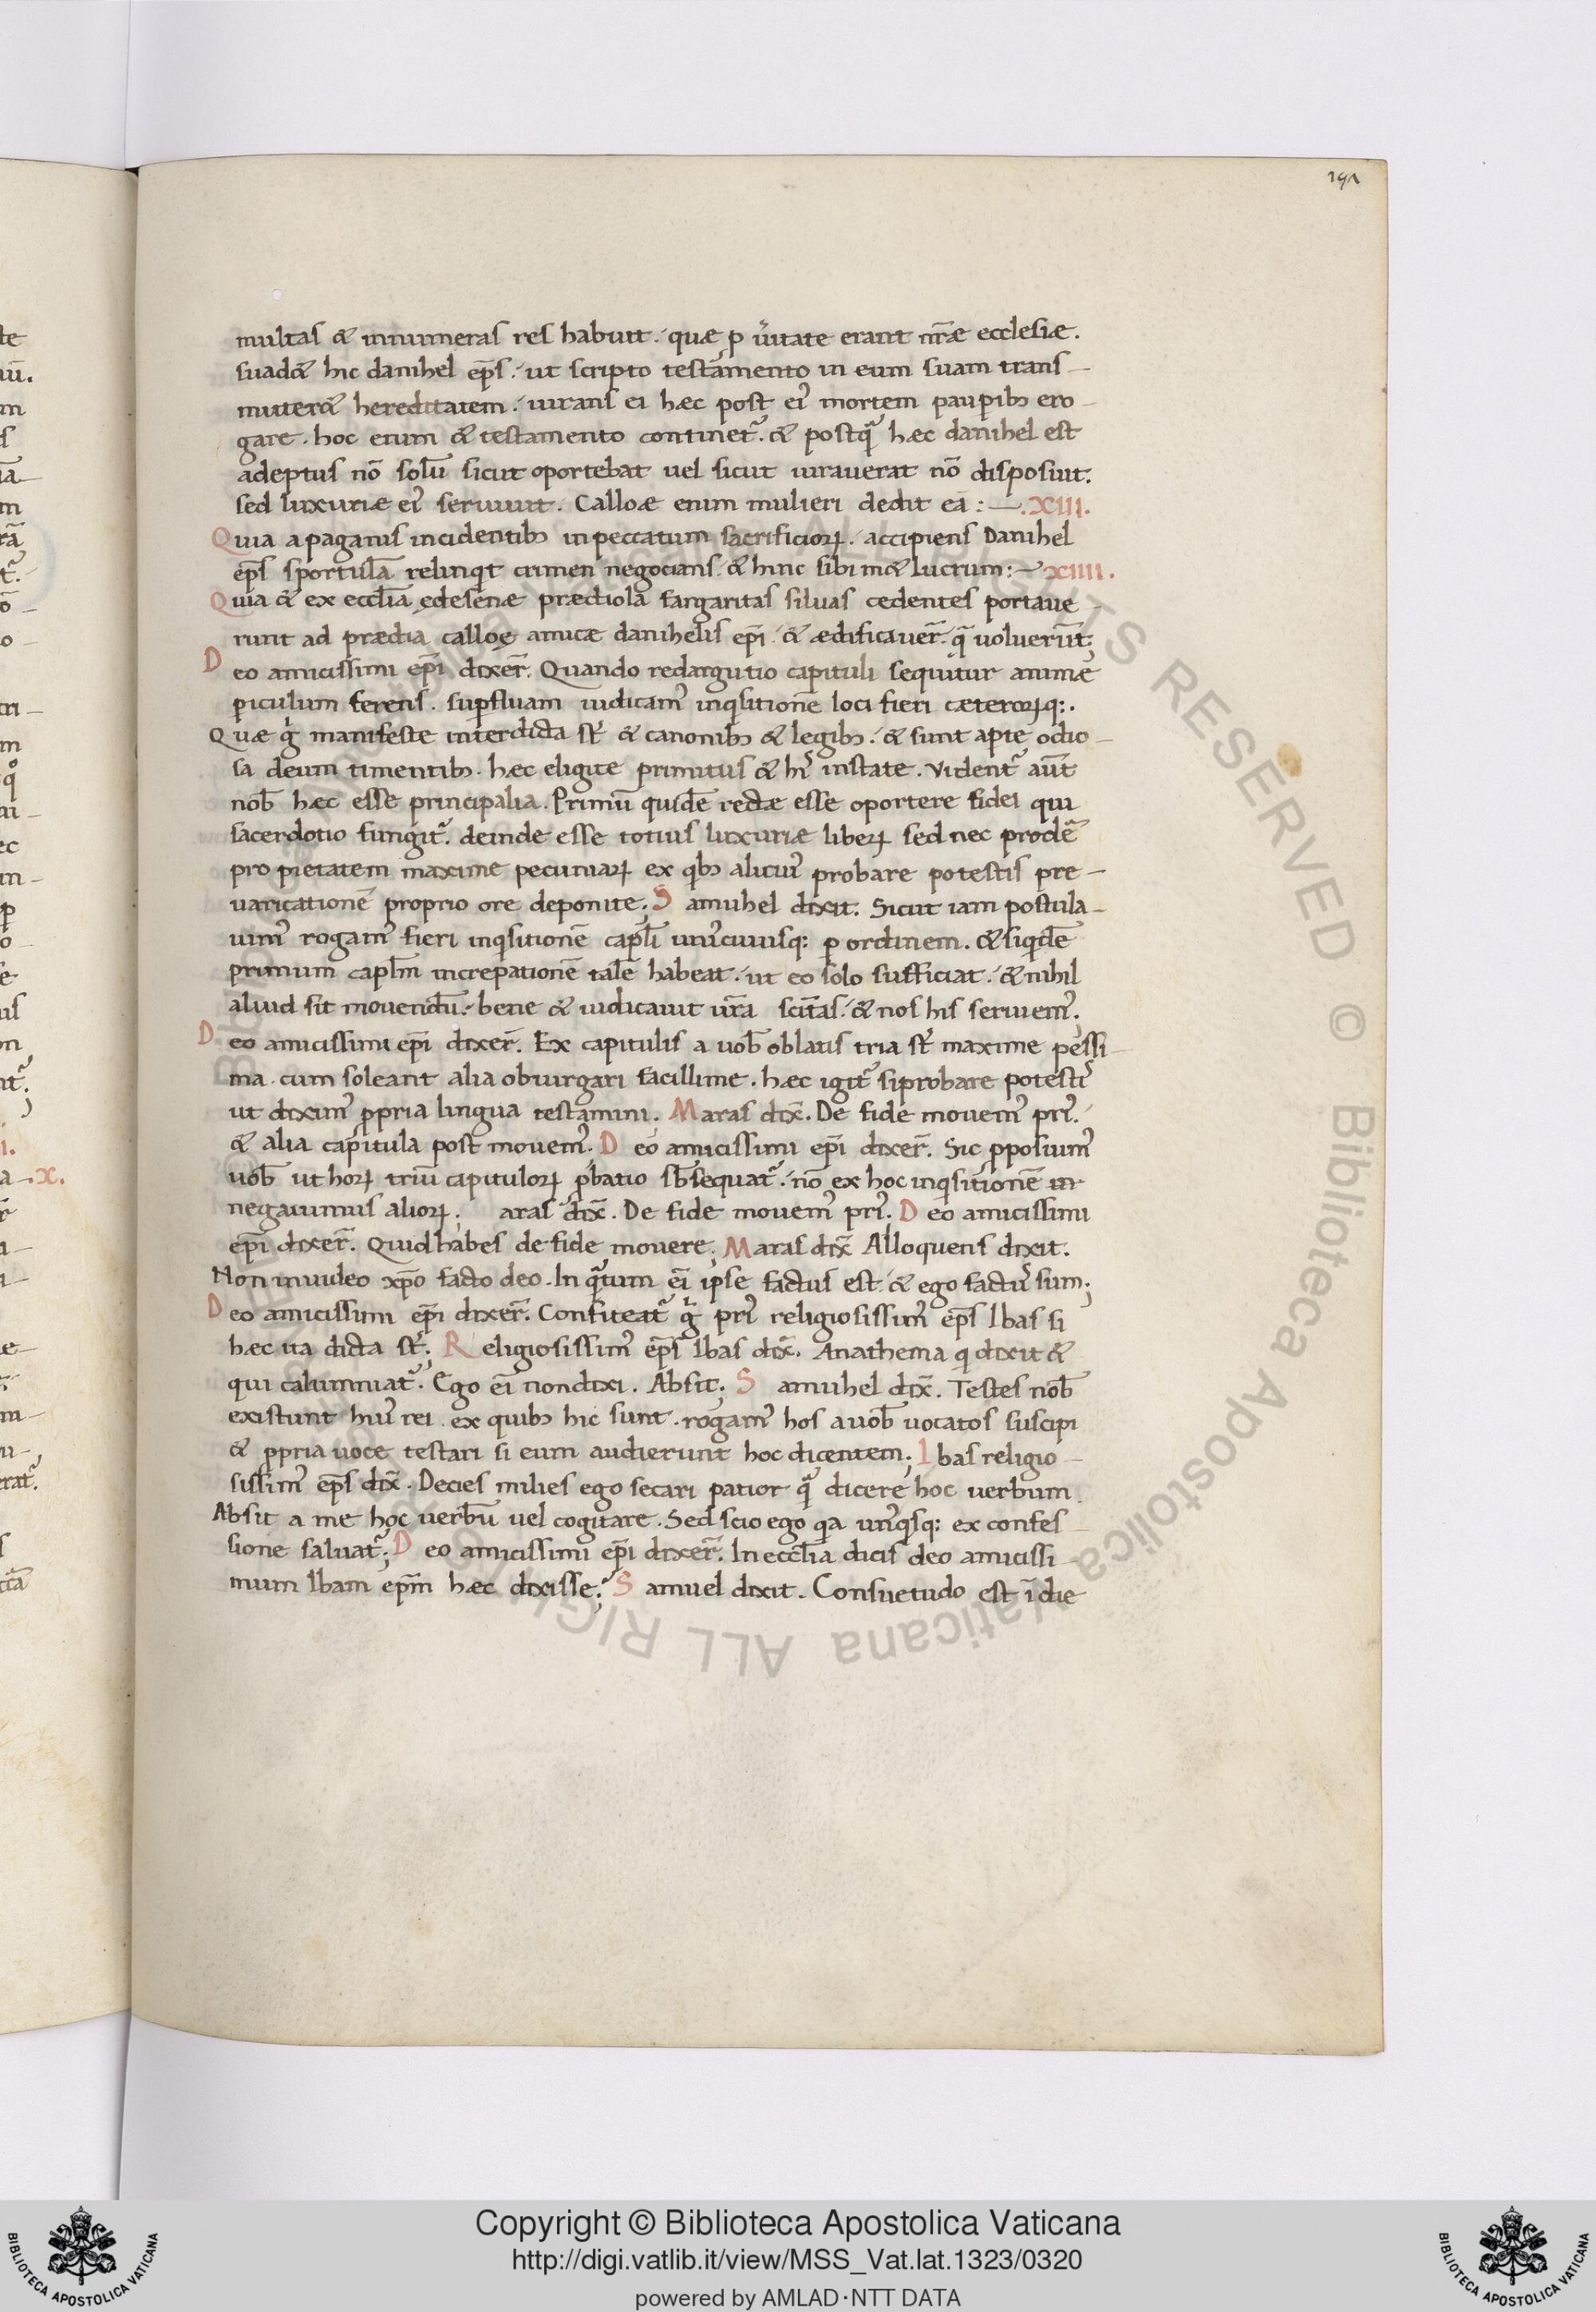 191
multas & innumeras res habuit. quæ ꝑ ũitate erant nr̃æ ecclesiæ.
suad& hic danihel ep̃s. ut scripto testamento in eum suam trans-
muter& hereditatem. iurans ei hæc post ei᾽ mortem paupib; ero-
gare. hoc enim & testamento continet᾽. & postq̃ hæc danihel est
adeptus nõ solũ sicut oportebat uel sicut iurauerat nõ disposuit.
sed luxuriæ ei᾽ seruiuit. Calloæ enim mulieri dedit eã :—. XIII.
Quia a paganis incidentib; in peccatum sacrificioꝝ. accipiens Danihel
ep̃s sportulã relinq̇t crimen negocians. & hinc sibi m& lucrum:— XIIII.
Quia & ex eccl̃ia edesenæ prædiola fargaritas siluas cedentes portaue-
runt ad prædia calloę amicæ danihelis ep̃i. & ædificauer̃. q̃ uoluerũt;
Deo amicissimi ep̃i dixer̃. Quando redargutio capituli sequitur animæ
ꝑiculum ferens. supfluam iudicam᾽ inq̇sitionẽ loci fieri cæteroꝝq:.
Quæ g̊ manifeste interdicta st̃ & canonib; & legib;. & sunt apte odio-
sa deum timentib;. hæc eligite primitus & hi᾽ instate. Vident᾽ aũt
nob̃ hæc esse principalia. Primũ quidẽ rectæ esse oportere fidei qui
sacerdotio fungit᾽. deinde esse totius luxuriæ liberꝝ sed nec prodẽ
pro pietatem maxime pecuniaꝝ ex qib; alicui᾽ probare potestis pre-
uaricationẽ proprio ore deponite. Samuhel dixit. Sicut iam postula-
uim᾽ rogam᾽ fieri inq̇sitionẽ capl̃i uniicuiusq: ꝑ ordinem. & siq̇dẽ
primum capl̃m increpationẽ talẽ habeat. ut eo solo sufficiat. & nihil
aliud sit mouendũ. bene & iudicauit ur̃a sc̃itas. & nos his seruiem᾽.
Deo amicissimi ep̃i dixer̃. Ex capitulis a uob̃ oblatis tria st̃ maxime pessi-
ma. cum soleant alia obiurgari facillime. hæc igit᾽ si probare potesti᾽
ut dixim᾽ ꝓpria lingua testamini. Maras dix̃. De fide mouem᾽ pri᾽.
& alia capitula post mouem᾽. Deo amicissimi ep̃i dixer̃. Sic ꝓposuim᾽
uob̃ ut hoꝝ triũ capituloꝝ ꝓbatio sb̃sequat᾽. nõ ex hoc inq̇sitionẽ in
negauimus alioꝝ; aras dix̃. De fide mouem᾽ pri᾽. Deo amicissimi
ep̃i dixer̃. Quid habes de fide mouere. Maras dix̃ Alloquens dixit.
Non inuideo xp̃o facto deo. In q̃tum eĩ ipse factus est. & ego factu᾽ sum;
Deo amicissimi ep̃i dixer̃. Confiteat᾽ g̊ pri᾽ religiosissim᾽ ep̃s Ibas si
hæc ita dicta st̃; Religiosissim᾽ ep̃s Ibas dix̃. Anathema q̇ dixit &
qui calumniat᾽. Ego eĩ non dixi. Absit; Samuhel dix̃. Testes nob̃
existunt hui᾽ rei. ex quib; hic sunt. rogam᾽ hos a uob̃ uocatos suscipi
& ꝓpria uoce testari si eum audierunt hoc dicentem; Ibas religio-
sissim᾽ ep̃s dix̃. Decies milies ego secari patior q̃ dicere hoc uerbum.
Absit a me hoc uerbũ uel cogitare. Sed scio ego q̇a un᾽q̇sq: ex confes-
sione saluat᾽; Deo amicissimi ep̃i dixer̃. In eccl̃ia dicis deo amicissi-
mum Ibam ep̃m hæc dixisse; Samuel dixit. Consuetudo est ĩ die
Copyright © Biblioteca Apostolica Vaticana
http://digi.vatlib.it/view/MSS_Vat.lat.1323/0320
powered by AMLAD·NTT DATA
BIBLIOTECA APOSTOLICA VATICANA
BIBLIOTECA APOSTOLICA VATICANA